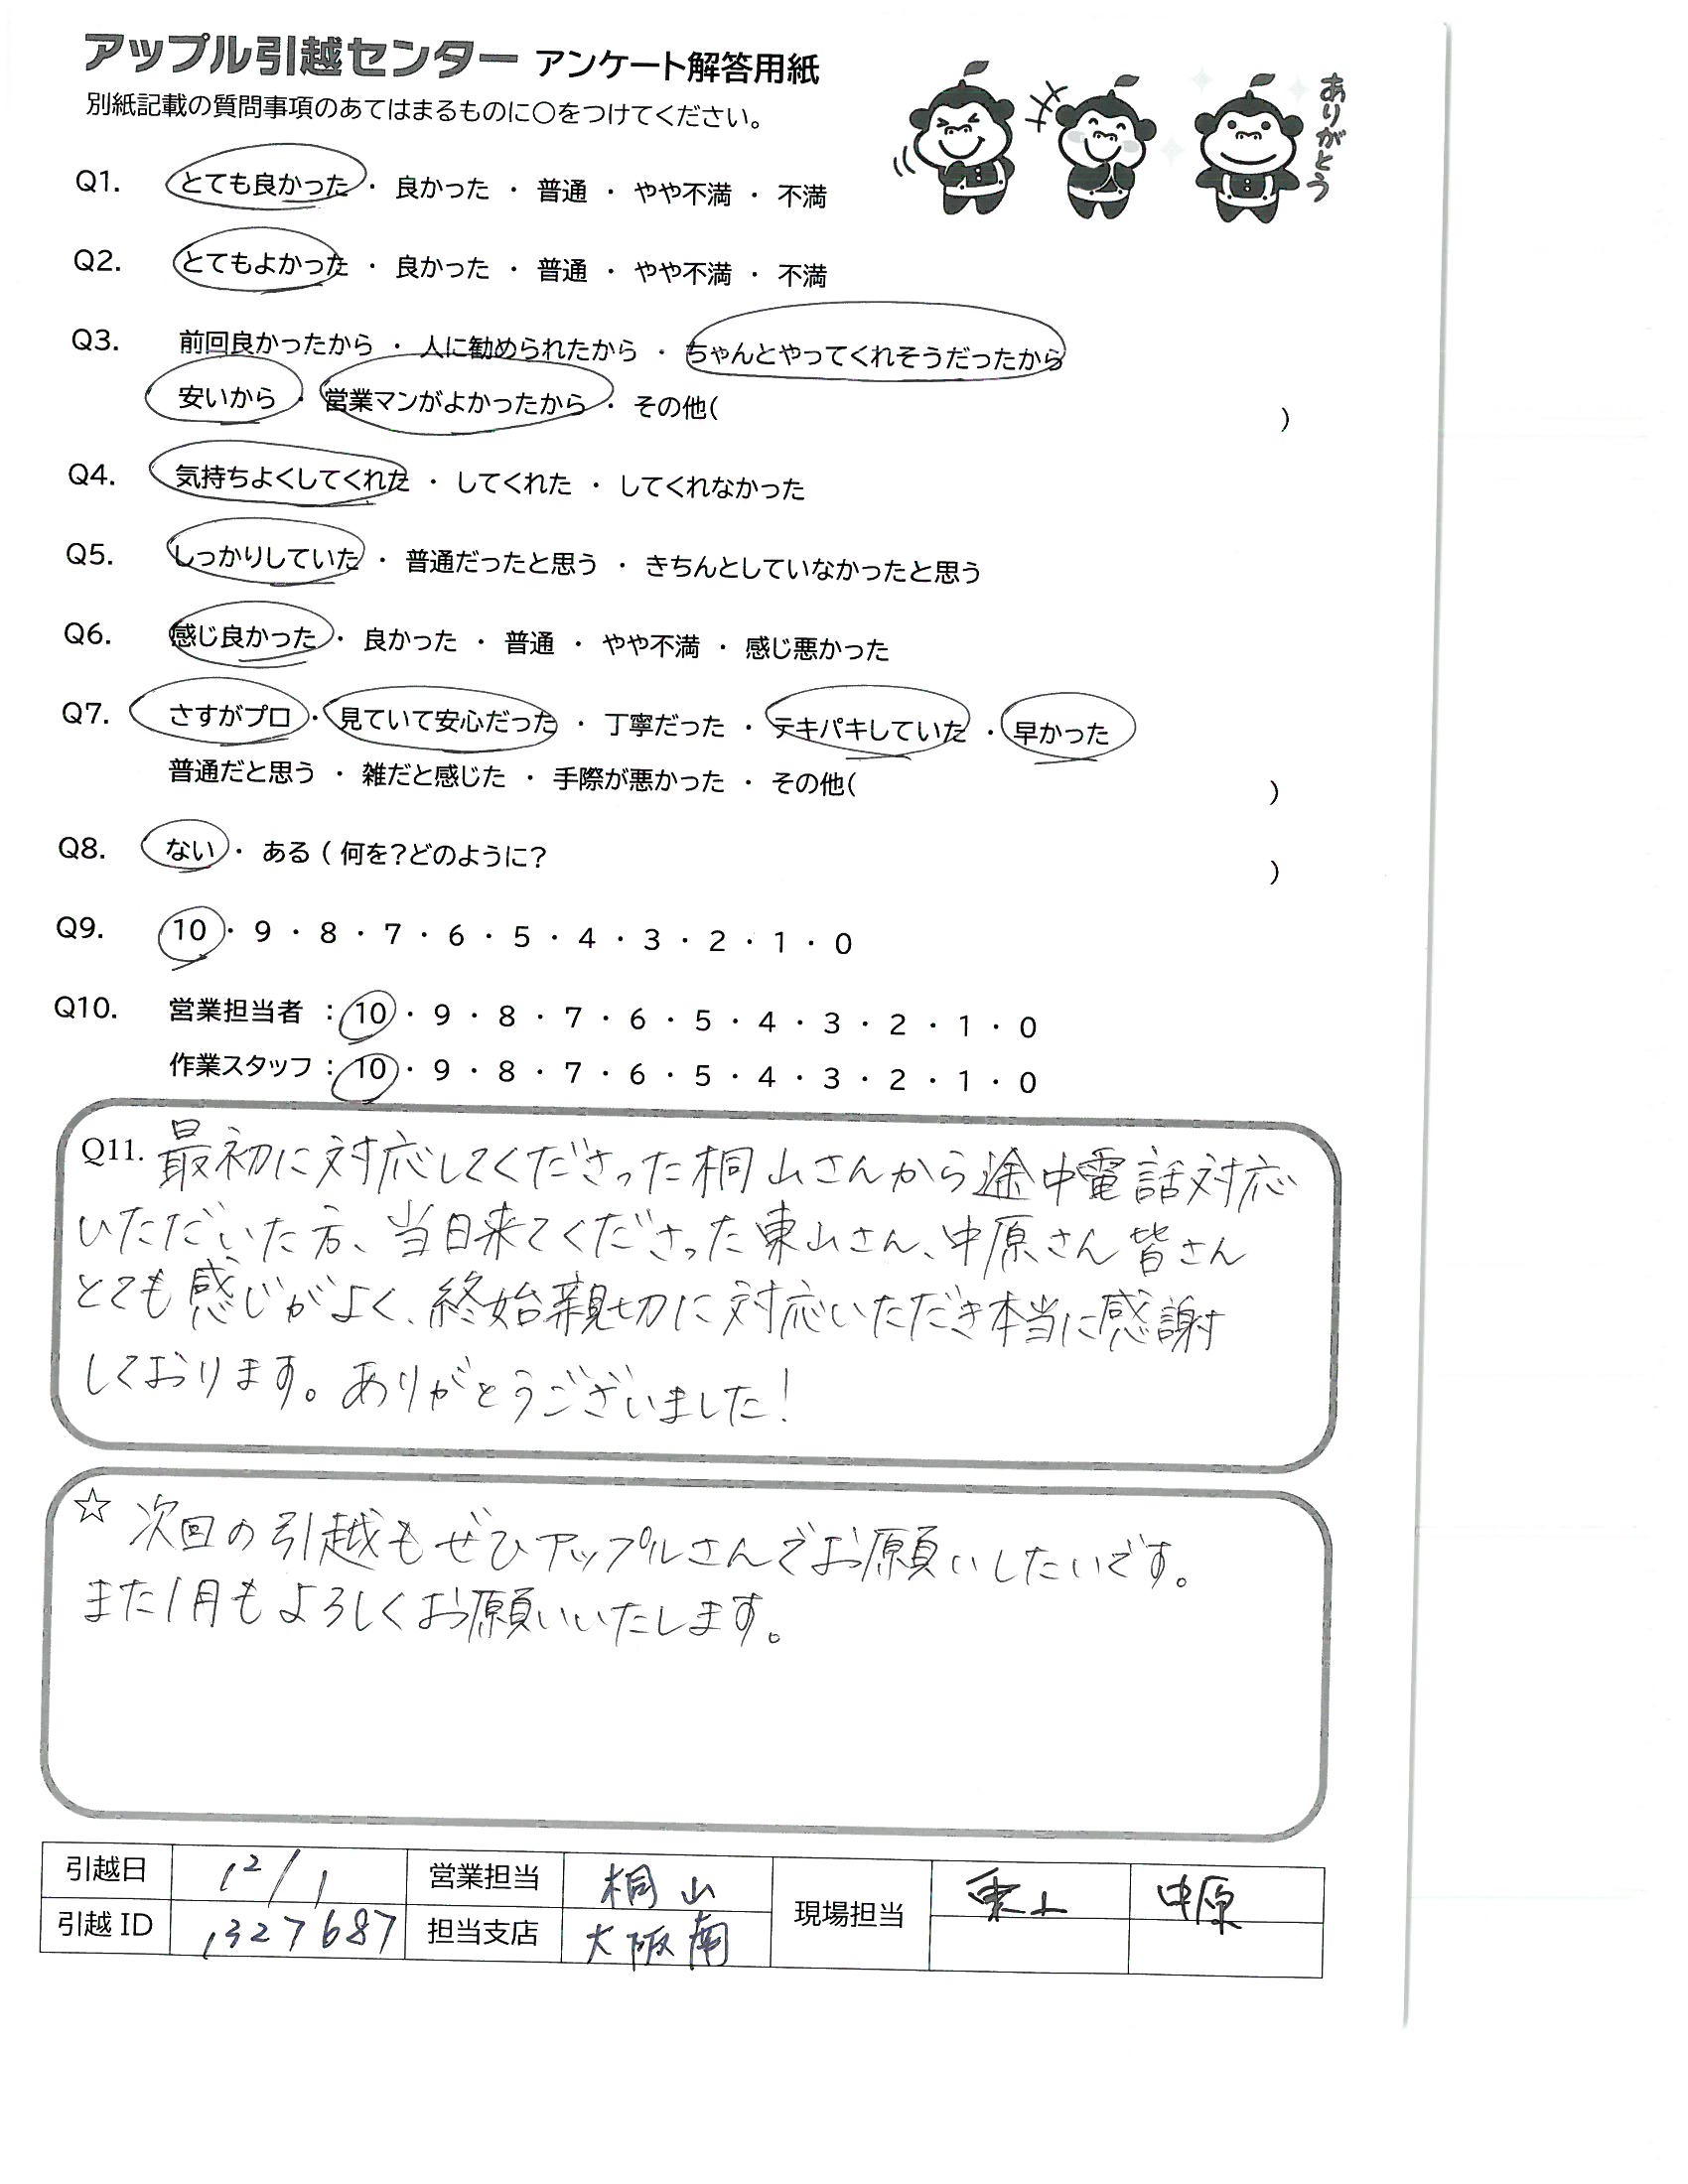 アップル引越センター アンケート解答用紙
別紙記載の質問事項のあてはまるものに〇をつけてください。
ありがとう
Q1. とても良かった ・ 良かった ・ 普通 ・ やや不満 ・ 不満
Q2. とてもよかった ・ 良かった ・ 普通 ・ やや不満 ・ 不満
Q3. 前回良かったから ・ 人に勧められたから ・ ちゃんとやってくれそうだったから
安いから ・ 営業マンがよかったから ・ その他( )
Q4. 気持ちよくしてくれた ・ してくれた ・ してくれなかった
Q5. しっかりしていた ・ 普通だったと思う ・ きちんとしていなかったと思う
Q6. 感じ良かった ・ 良かった ・ 普通 ・ やや不満 ・ 感じ悪かった
Q7. さすがプロ ・ 見ていて安心だった ・ 丁寧だった ・ テキパキしていた ・ 早かった
普通だと思う ・ 雑だと感じた ・ 手際が悪かった ・ その他( )
Q8. ない ・ ある ( 何を?どのように? )
Q9. 10 ・ 9 ・ 8 ・ 7 ・ 6 ・ 5 ・ 4 ・ 3 ・ 2 ・ 1 ・ 0
Q10. 営業担当者 : 10 ・ 9 ・ 8 ・ 7 ・ 6 ・ 5 ・ 4 ・ 3 ・ 2 ・ 1 ・ 0
作業スタッフ : 10 ・ 9 ・ 8 ・ 7 ・ 6 ・ 5 ・ 4 ・ 3 ・ 2 ・ 1 ・ 0
Q11. 最初に対応してくださった桐山さんから途中電話対応
いただいた方、当日来てくださった東山さん、中原さん皆さん
とても感じがよく、終始親切に対応いただき本当に感謝
しております。ありがとうございました!
☆ 次回の引越もぜひアップルさんでお願いしたいです。
また1月もよろしくお願いいたします。
引越日 12/1 営業担当 桐山 現場担当 東山 中原
引越 ID 1327687 担当支店 大阪南